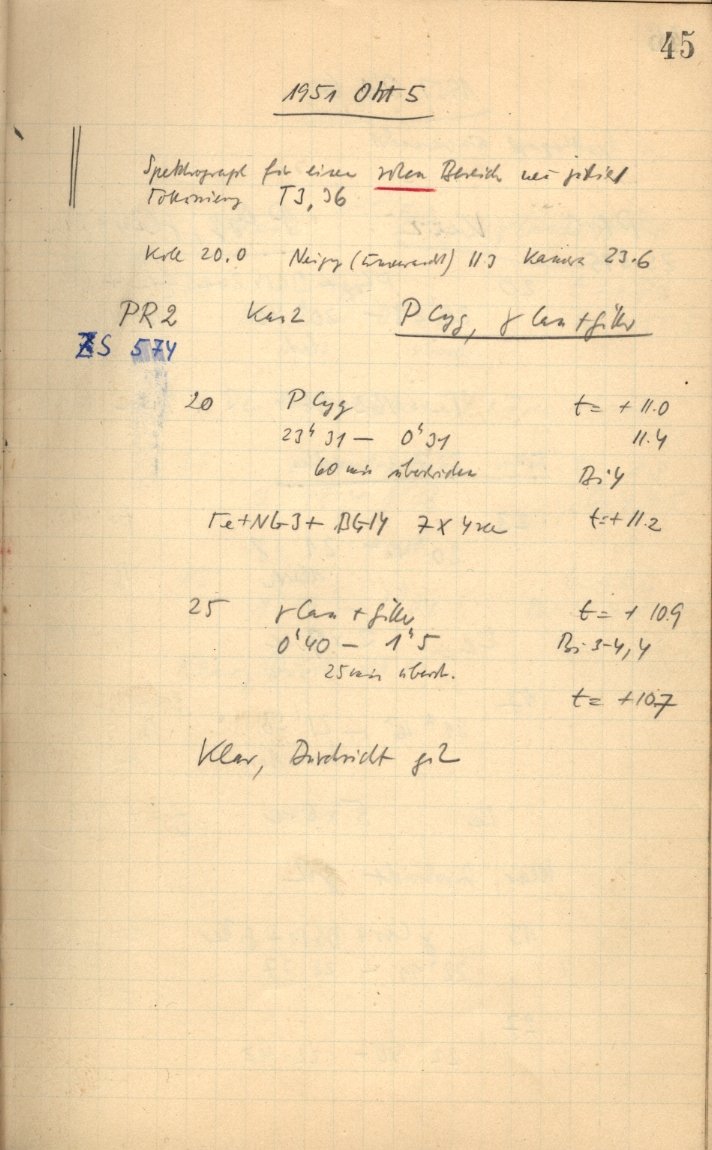 45
1951 Okt 5
Spektrograph für einen roten Bereich neu justiert
Fokussierung T3, 36
Keil 20.0 Neigung 113 Kamera 23.6
PR2 Kas2 P Cyg, γ Cas + Filter
ZS 574
20 P Cyg t= +11.0
23ʰ31 — 0ʰ31 11.4
60 min überschieden Bi 4
Fe+NG3+BG14 7x4sec t=+11.2
25 γ Cas + Filter t= +10.9
0ʰ40 — 1ʰ5 Bi 3-4, 4
25 min übersch.
t= +10.7
Klar, Durchsicht gut